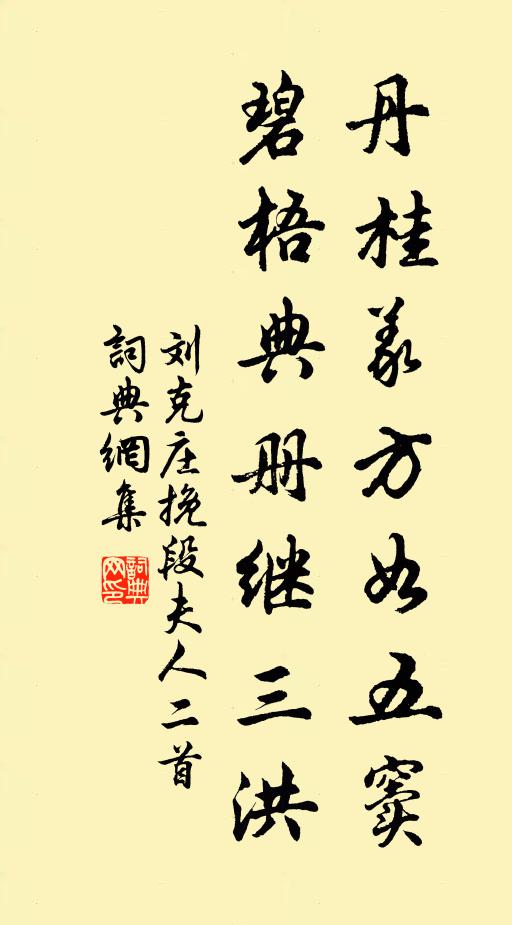 丹桂义方如五窦
碧梧典册继三洪
刘克庄挽段夫人二首
詞典網集
詞典网印